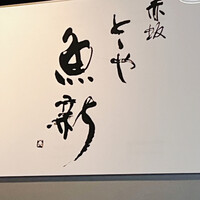 赤坂
とゝや
魚新